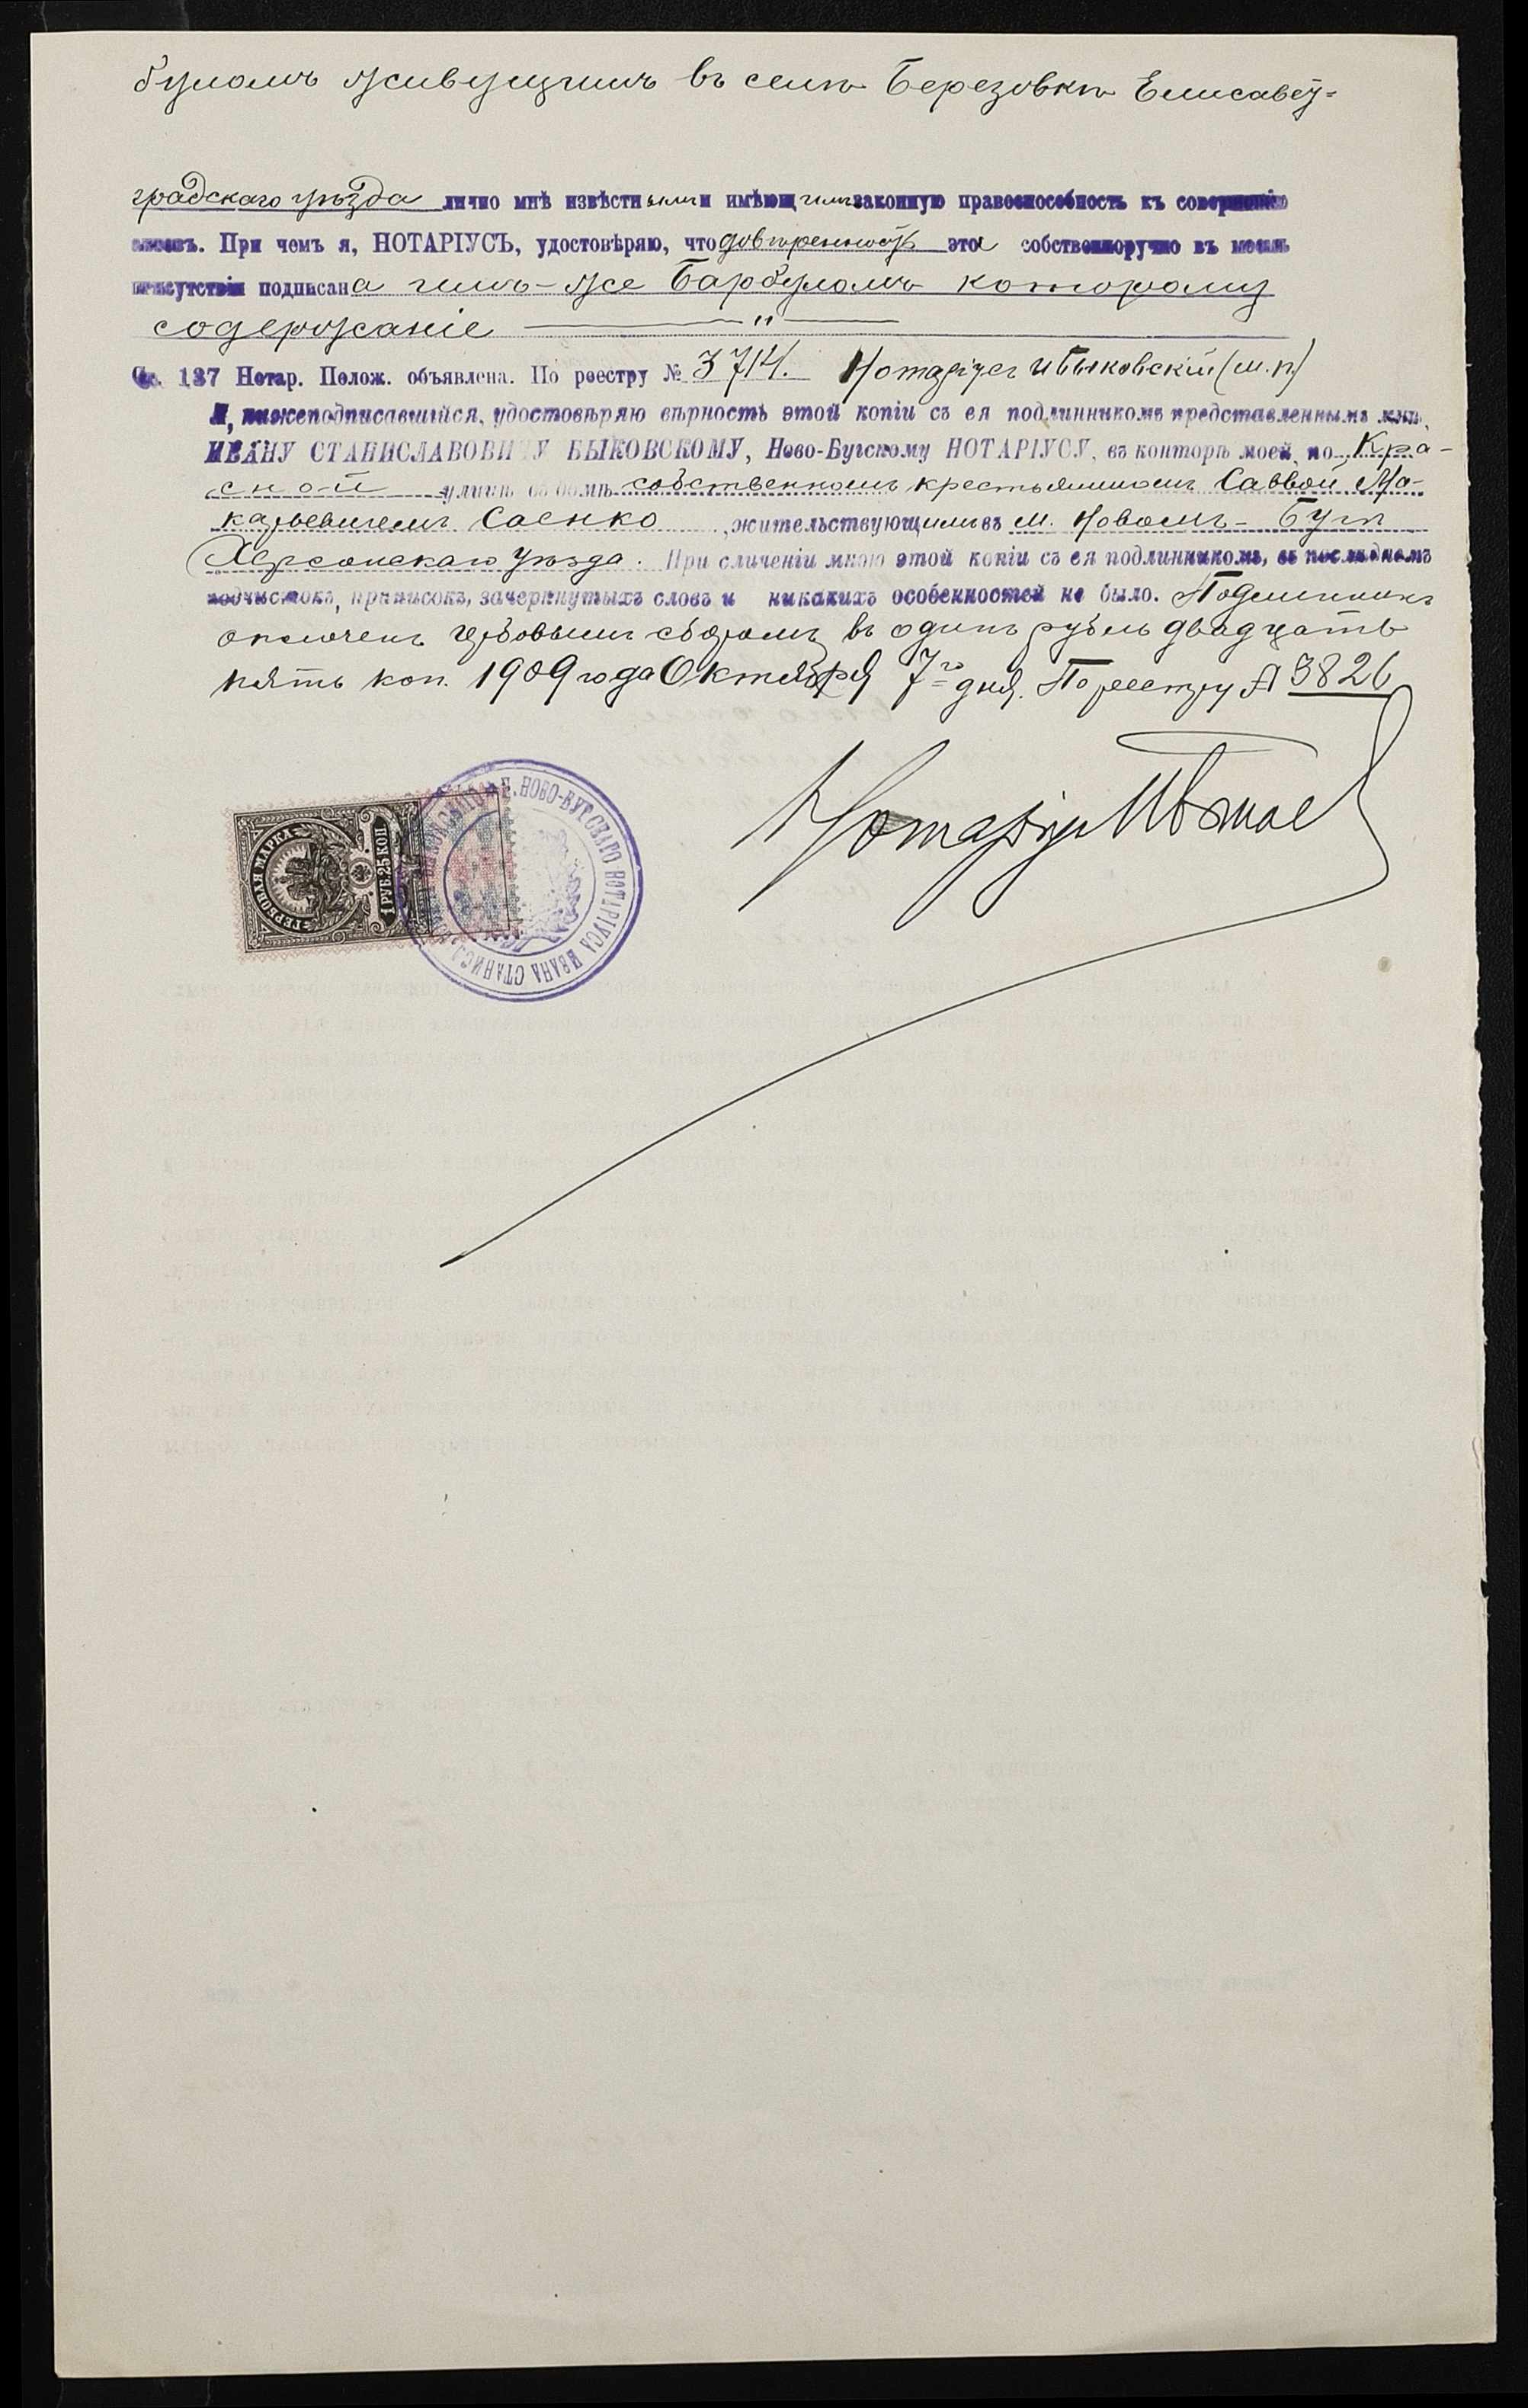 буломъ живущимъ въ селѣ Березовкѣ Елисавет=
градскаго уѣзда лично мнѣ извѣстнымъ и имѣющимъ законную правоспособность къ совершенію
актовъ. При чемъ я, НОТАРІУСЪ, удостовѣряю, что довѣренность эта собственноручно въ моемъ
присутствіи подписана имъ-же Барбуломъ которому
содержаніе — " —
Ст. 137 Нотар. Полож. объявлена. По реестру № 3714. Нотаріусъ И Быковскій (м.п)
Я, нижеподписавшійся, удостовѣряю вѣрность этой копіи съ ея подлинникомъ представленнымъ мнѣ,
ИВАНУ СТАНИСЛАВОВИЧУ БЫКОВСКОМУ, Ново-Бугскому НОТАРІУСУ, въ конторѣ моей, по Кра-
сной улицѣ въ домѣ собственномъ крестьяниномъ Саввой Ма-
карьевичемъ Саенко, жительствующимъ въ м. Новомъ-Бугѣ
Херсонскаго уѣзда. При сличеніи мною этой копіи съ ея подлинникомъ, въ послѣднемъ
подчистокъ, приписокъ, зачеркнутыхъ словъ и никакихъ особенностей не было. Подлинникъ
оплоченъ гербовымъ сборомъ въ одинъ рубль двадцать
пять коп. 1909 года Октября 7го дня. По реестру № 3826
Нотаріусъ
ГЕРБОВАЯ МАРКА
1 РУБ. 25 КОП
НОВО-БУГСКАГО НОТАРІУСА ИВАНА СТАНИСЛ